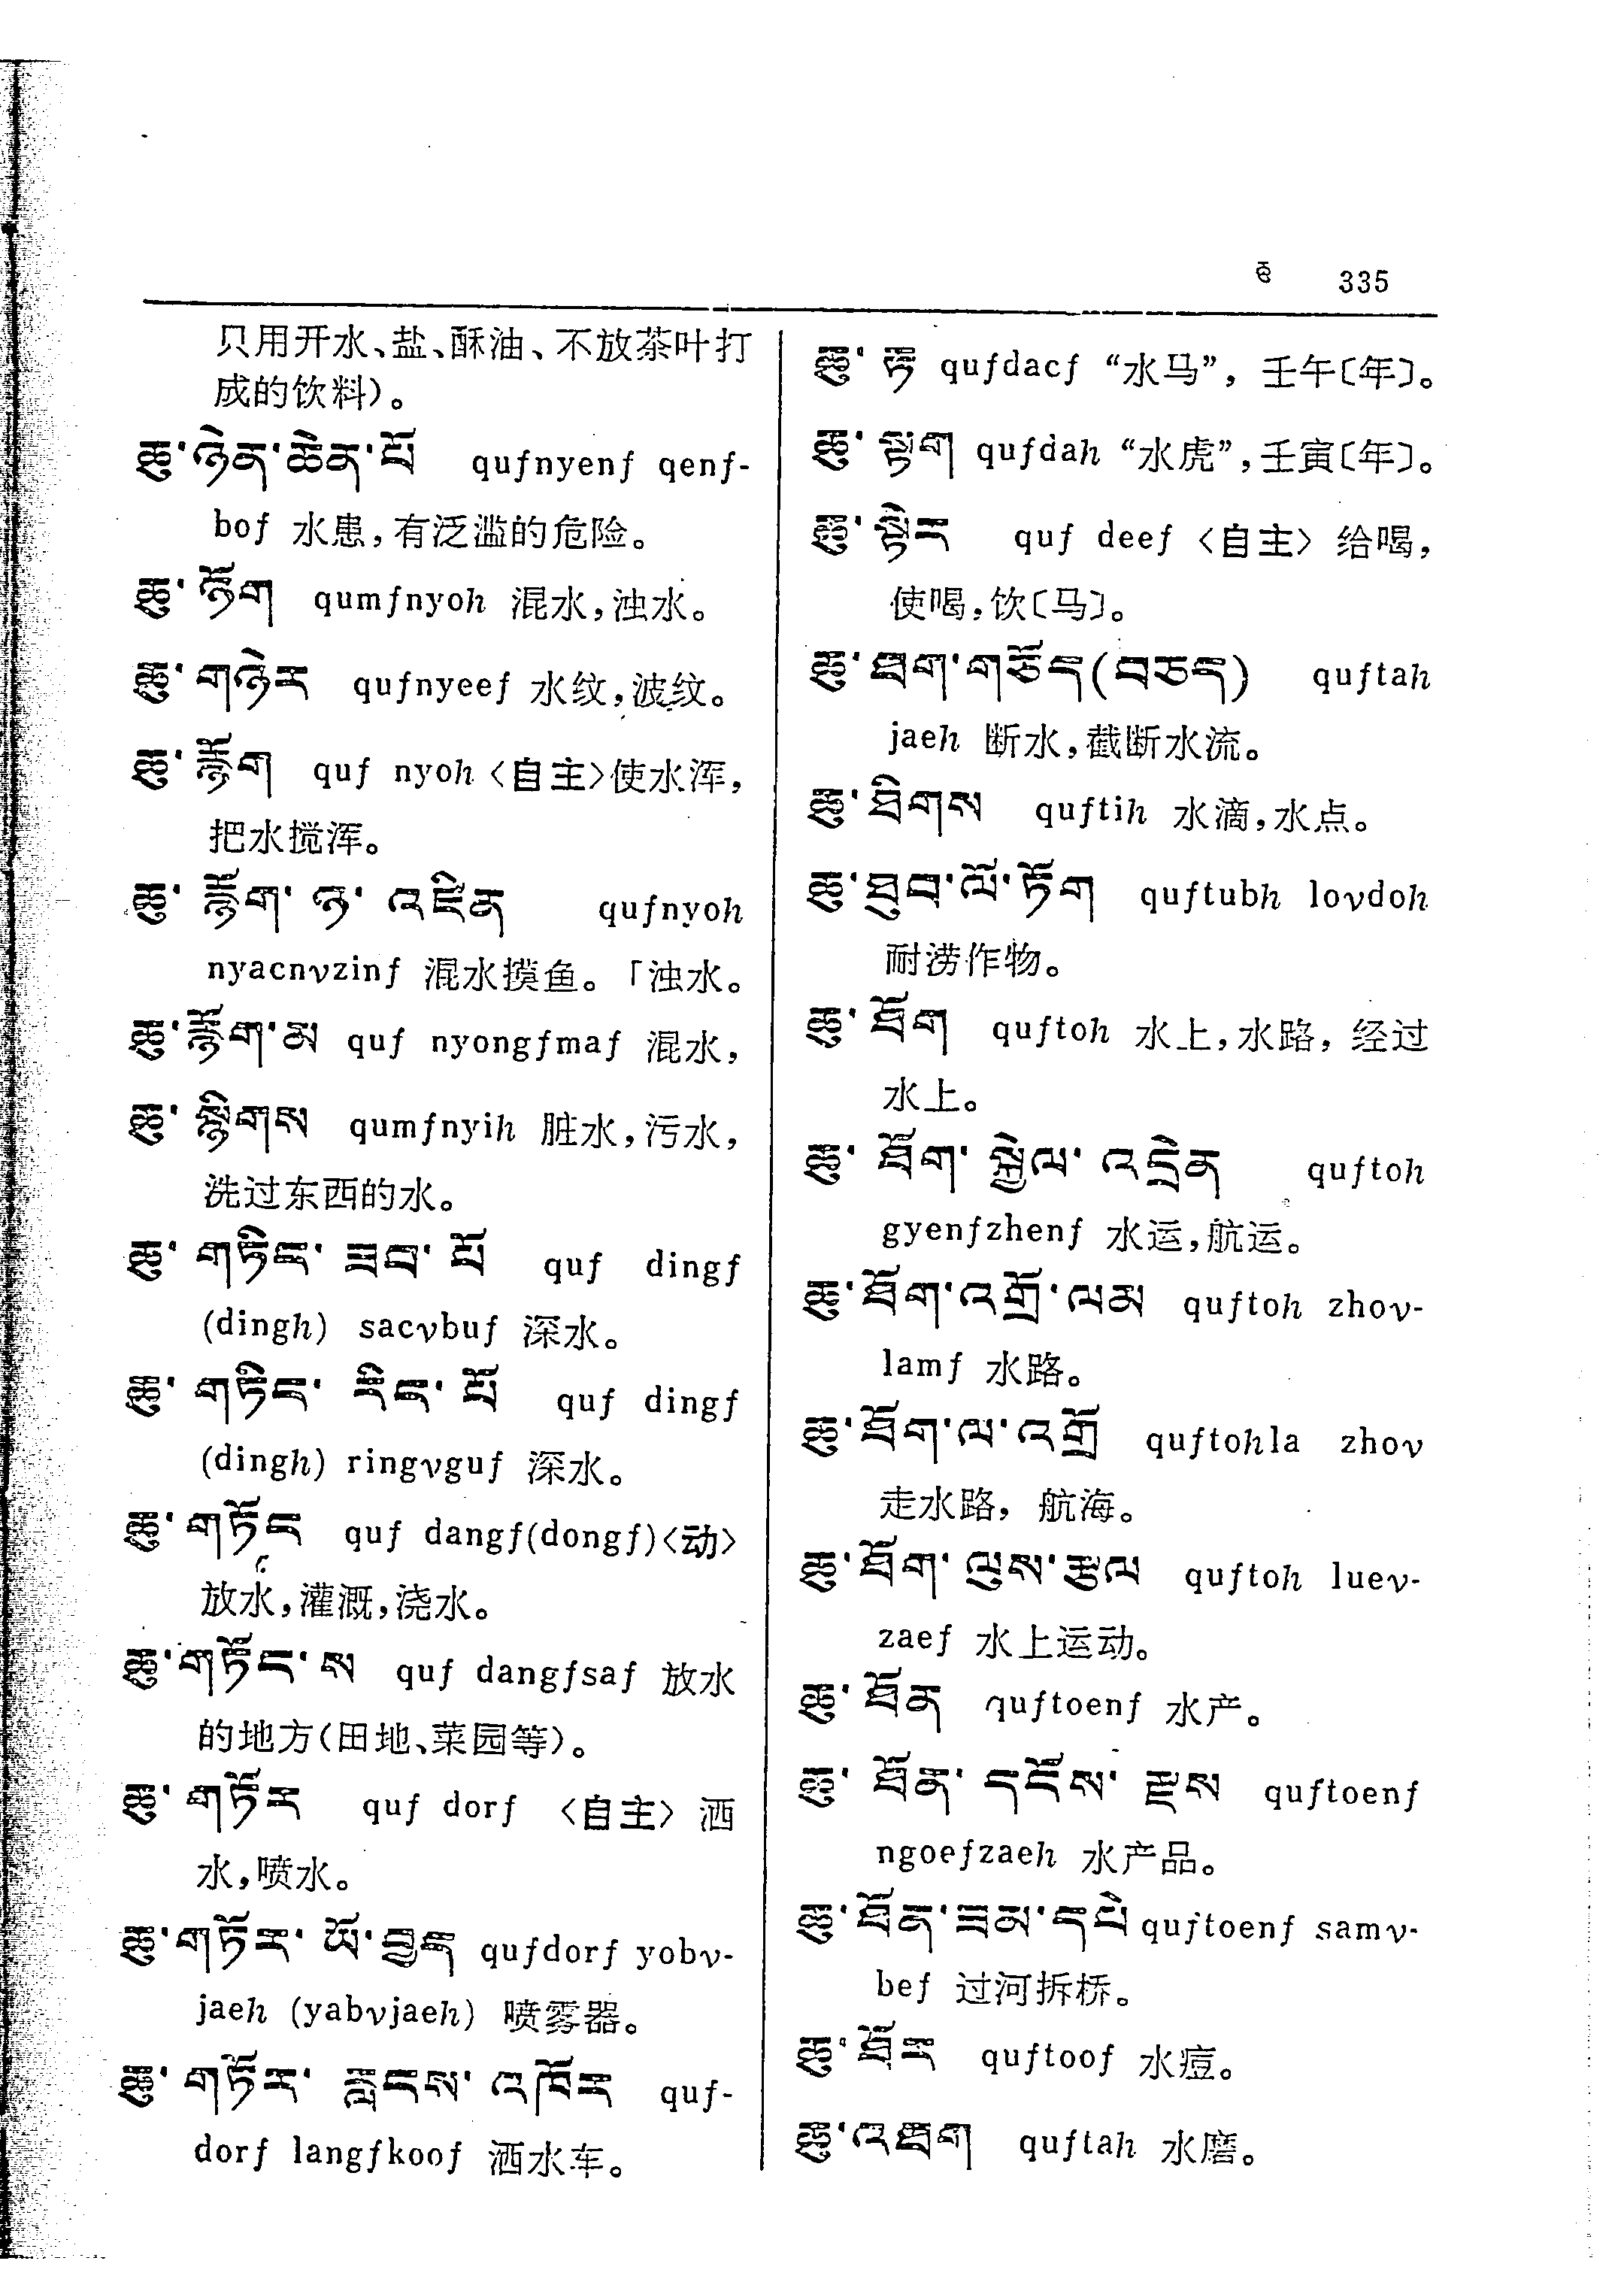 ཆ 335
只用开水、盐、酥油、不放茶叶打
成的饮料）。
ཆུ་ཉེན་ཆེན་པོ qufnyenf qenf-
bof 水患，有泛滥的危险。
ཆུ་ཉོག qumfnyoh 混水，浊水。
ཆུ་གཉེར qufnyeef 水纹，波纹。
ཆུ་རྙོག quf nyoh〈自主〉使水浑，
把水搅浑。
ཆུ་རྙོག་ཉ་འཛིན qufnyoh
nyacnvzinf 混水摸鱼。「浊水。
ཆུ་རྙོག་མ quf nyongfmaf 混水，
ཆུ་སྙིགས qumfnyih 脏水，污水，
洗过东西的水。
ཆུ་གཏིང་ཟབ་པོ quf dingf
(dingh) sacvbuf 深水。
ཆུ་གཏིང་རིང་པོ quf dingf
(dingh) ringvguf 深水。
ཆུ་གཏོང quf dangf(dongf)〈动〉
放水，灌溉，浇水。
ཆུ་གཏོང་ས quf dangfsaf 放水
的地方（田地、菜园等）。
ཆུ་གཏོར quf dorf 〈自主〉 洒
水，喷水。
ཆུ་གཏོར་ཡོ་བྱད qufdorf yobv-
jaeh (yabvjaeh) 喷雾器。
ཆུ་གཏོར་རླངས་འཁོར quf-
dorf langfkoof 洒水车。
ཆུ་རྟ qufdacf “水马”，壬午〔年〕。
ཆུ་སྟག qufdah “水虎”，壬寅〔年〕。
ཆུ་སྟེར quf deef〈自主〉给喝，
使喝，饮〔马〕。
ཆུ་ཐག་གཅོད(བཅད) quftah
jaeh 断水，截断水流。
ཆུ་ཐིགས quftih 水滴，水点。
ཆུ་ཐུབ་ལོ་ཏོག quftubh lovdoh
耐涝作物。
ཆུ་ཐོག quftoh 水上，水路，经过
水上。
ཆུ་ཐོག་སྐྱེལ་འདྲེན quftoh
gyenfzhenf 水运，航运。
ཆུ་ཐོག་འགྲོ་ལམ quftoh zhov-
lamf 水路。
ཆུ་ཐོག་ལ་འགྲོ quftohla zhov
走水路，航海。
ཆུ་ཐོག་ལུས་རྩལ quftoh luev-
zaef 水上运动。
ཆུ་ཐོན quftoenf 水产。
ཆུ་ཐོན་དངོས་རྫས quftoenf
ngoefzaeh 水产品。
ཆུ་ཐོན་ཟམ་དཔེ quftoenf samv-
bef 过河拆桥。
ཆུ་ཐོར quftoof 水痘。
ཆུ་འཐག quftah 水磨。